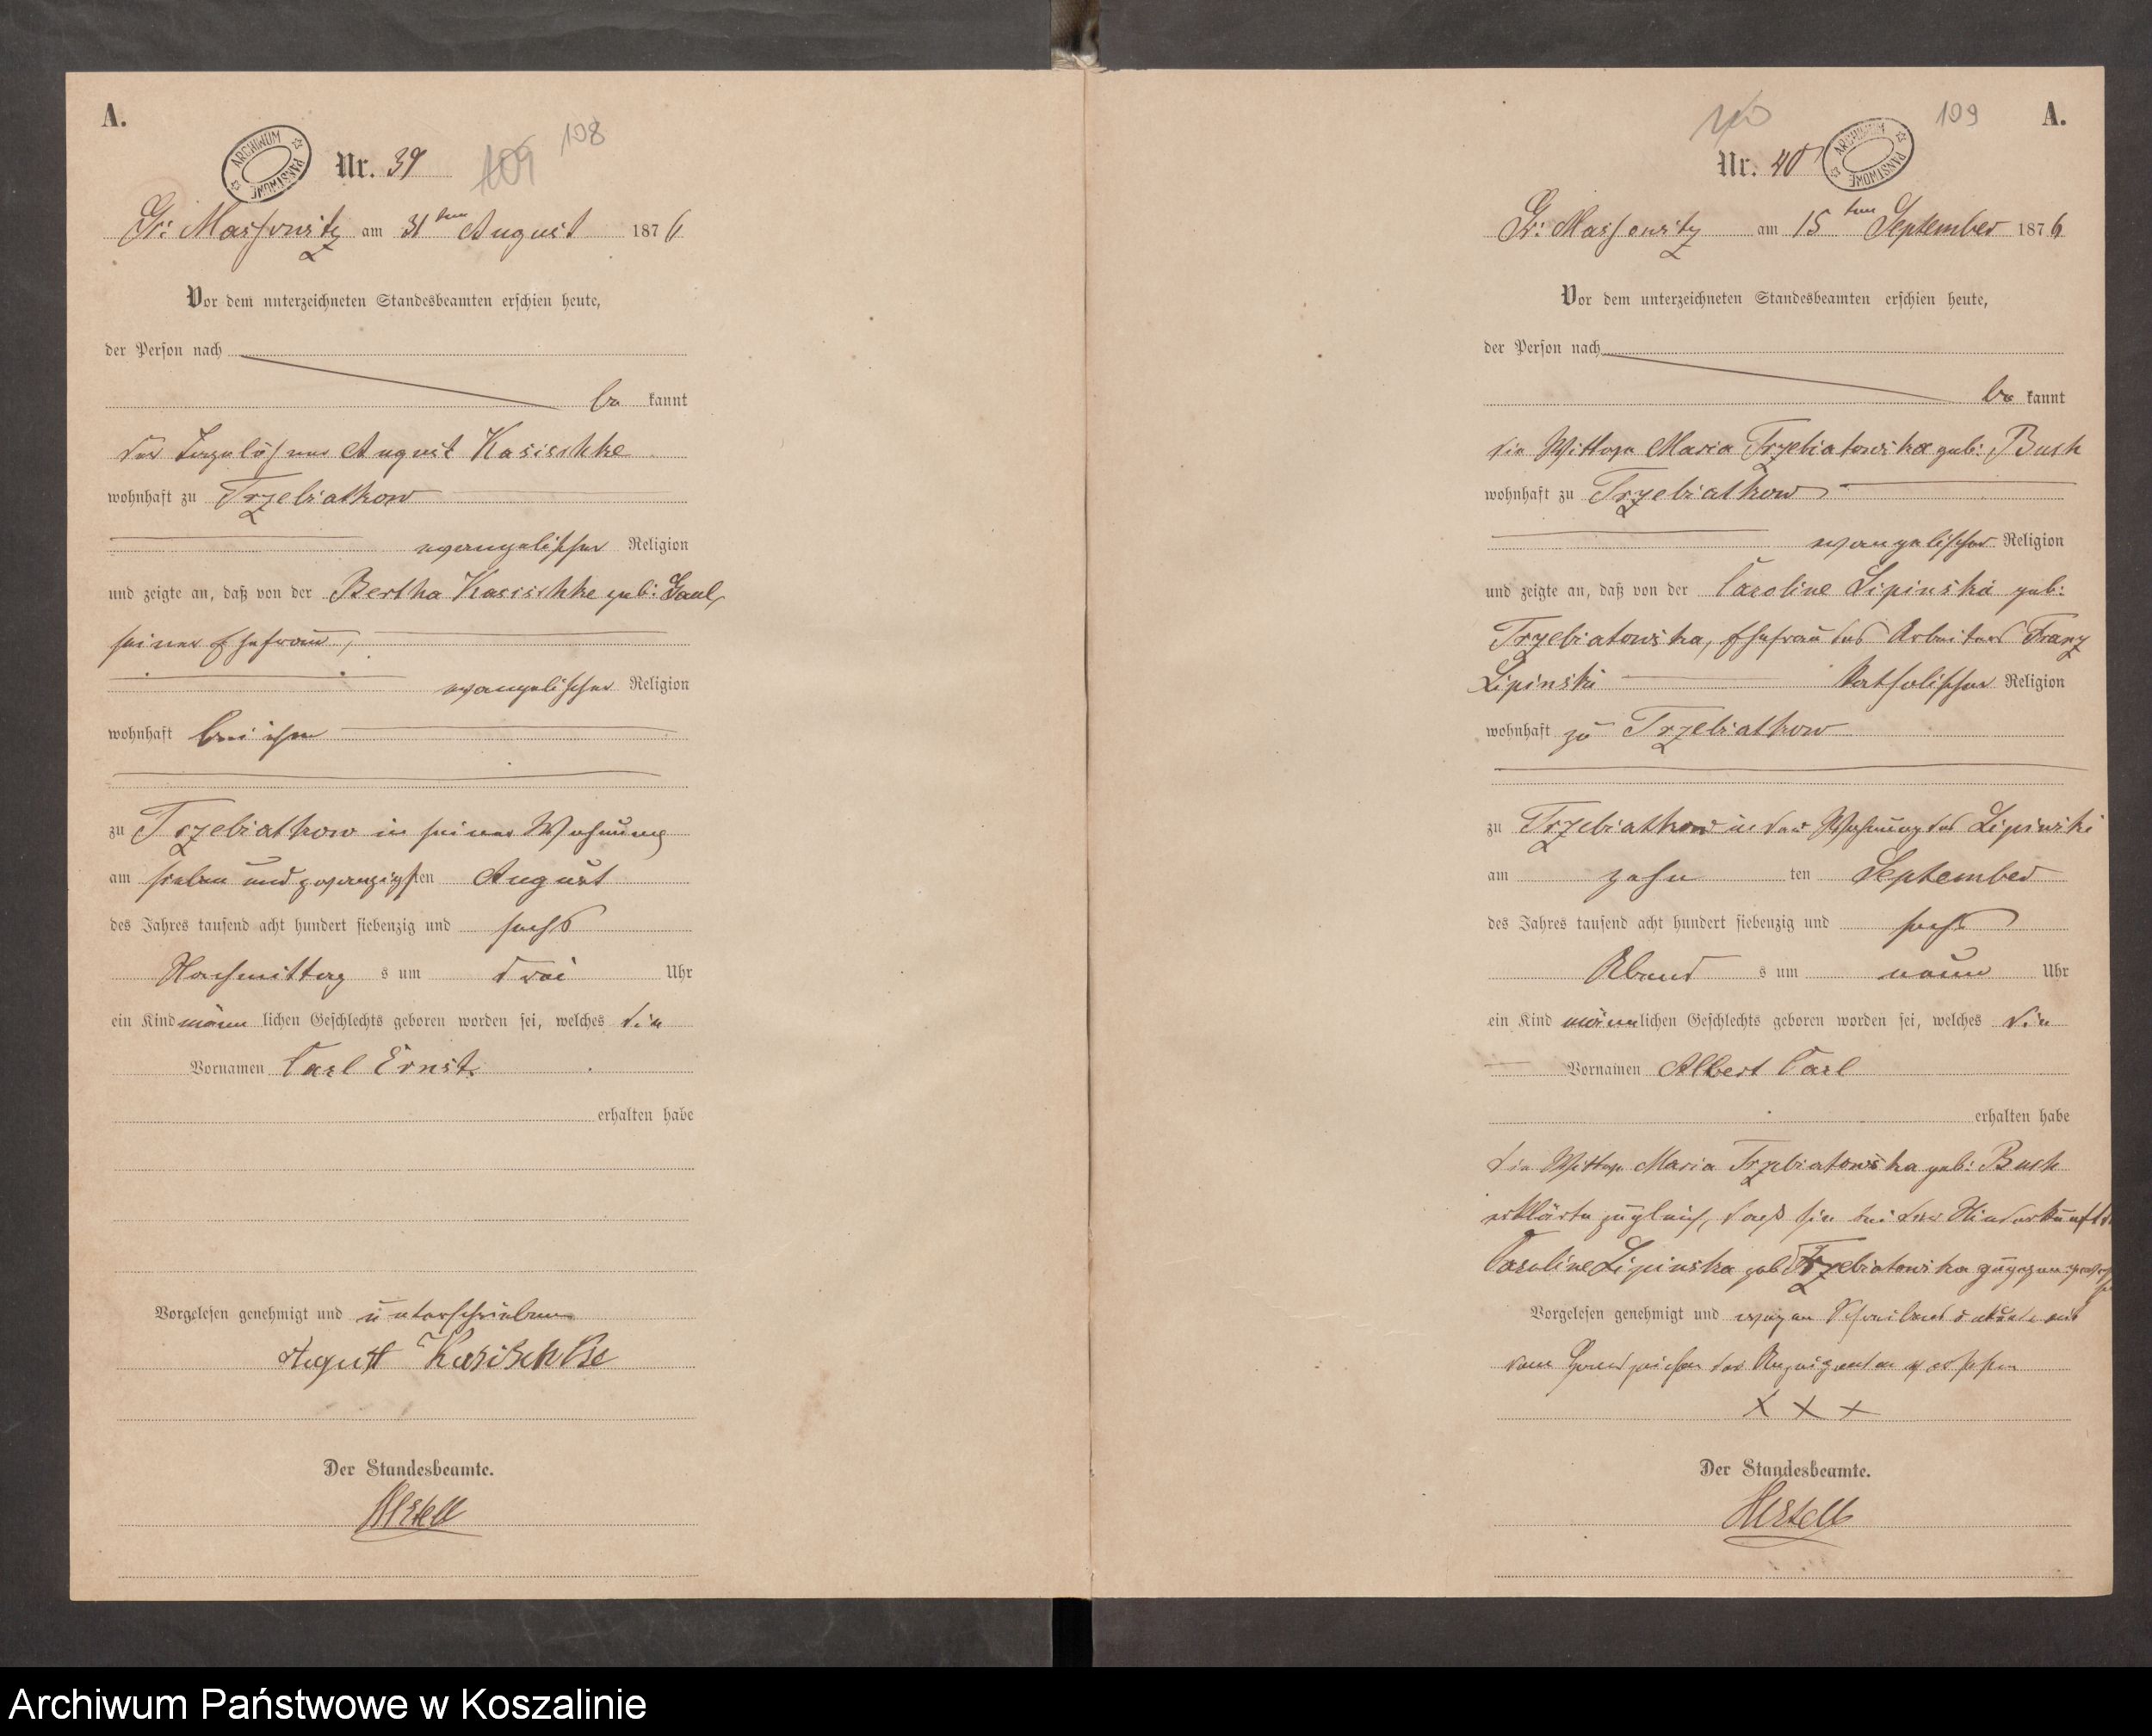 A.
ARCHIWUM PAŃSTWOWE
Nr. 39
109
108
Gr: Massowitz am 31ten August 1876
Vor dem unterzeichneten Standesbeamten erschien heute,
der Person nach
be kannt
der August Kasischke
wohnhaft zu Trzebiatkow
evangelischer Religion
und zeigte an, daß von der Bertha Kasischke geb: Gaul,
seiner Ehefrau,
evangelischer Religion
wohnhaft bei ihm
zu Trzebiatkow in seiner Wohnung
am sieben und zwanzigsten August
des Jahres tausend acht hundert siebenzig und sechs
Nachmittag s um drei Uhr
ein Kind männ lichen Geschlechts geboren worden sei, welches die
Vornamen Carl Ernst
erhalten habe
Vorgelesen genehmigt und unterschrieben
August Kasischke
Der Standesbeamte.
Hertell
A.
110
109
Nr. 40
ARCHIWUM PAŃSTWOWE
Gr: Massowitz am 15ten September 1876
Vor dem unterzeichneten Standesbeamten erschien heute,
der Person nach
be kannt
die Wittwe Maria Trzebiatowska geb: Bush
wohnhaft zu Trzebiatkow
evangelischer Religion
und zeigte an, daß von der Caroline Lipinska geb:
Trzebiatowska, Ehefrau des Arbeiters Franz
Lipinski katholischer Religion
wohnhaft zu Trzebiatkow
zu Trzebiatkow in der Wohnung des Lipinski
am zehn ten September
des Jahres tausend acht hundert siebenzig und sechs
Abend s um neun Uhr
ein Kind männlichen Geschlechts geboren worden sei, welches die
Vornamen Albert Carl
erhalten habe
die Wittwe Maria Trzebiatowska geb: Bush
erklärte zugleich, daß sie bei der Niederkunft der
Caroline Lipinska geb Trzebiatowska zugegen gewesen sei
Vorgelesen genehmigt und wegen Schreibensunkunde mit
dem Handzeichen der Anzeigenden versehen
X X X
Der Standesbeamte.
Hertell
Archiwum Państwowe w Koszalinie